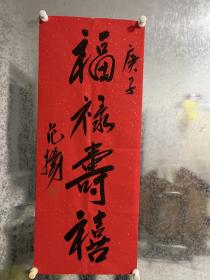 庚子
福禄壽禧
范扬